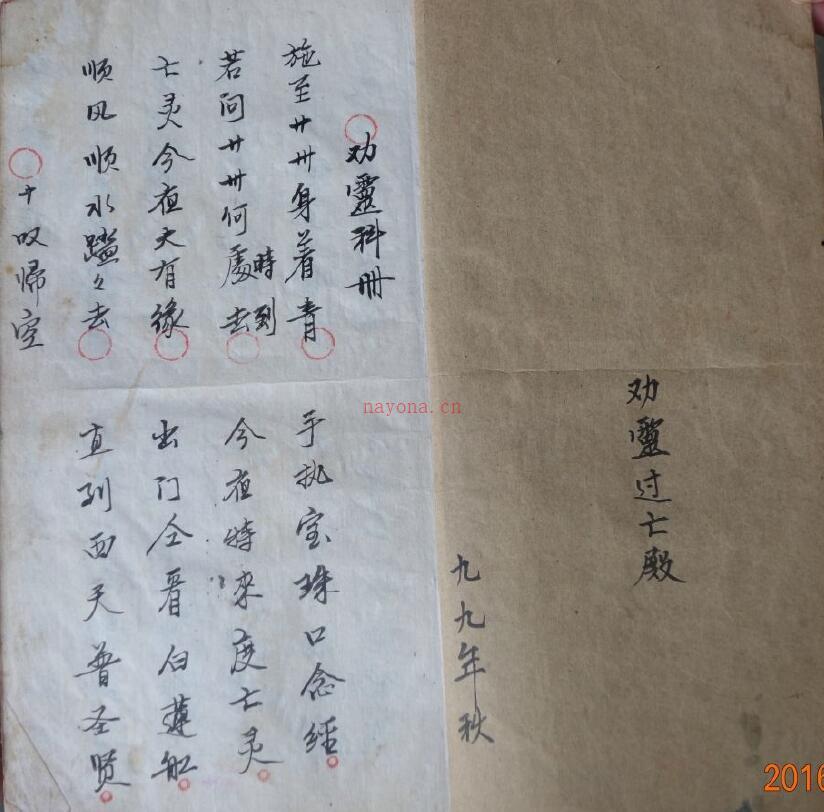 劝靈过亡殿
九九年秋
劝靈科册
施至廿卅身着青
手执宝珠口念经
若问廿卅何處去時到
今夜特來度亡灵
亡灵今夜大有缘
出门仝看白蓮船
顺风顺水踏々去
直到西天普圣贤
十叹歸空
nayona.cn
2016